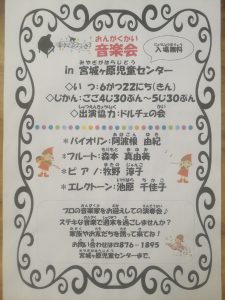 おんがくかい
音楽会
にゅうじょうむりょう
入場無料
みやぎがはらじどう
in 宮城ヶ原児童センター
◇いつ:6がつ22にち(きん)
◇じかん:ごご4じ30ぷん~5じ30ぷん
しゅつえんきょうりょく
◇出演協力:ドルチェの会
*バイオリン:阿波根 由紀
*フルート:森本 真由美
*ピアノ:牧野 淳子
*エレクトーン:池原 千佳子
プロの音楽家をお迎えしての演奏会♪
ステキな音楽で週末を過ごしませんか?
家族やお友だちを誘って来てね!
お問い合わせは876-1895
宮城ヶ原児童センターまで。